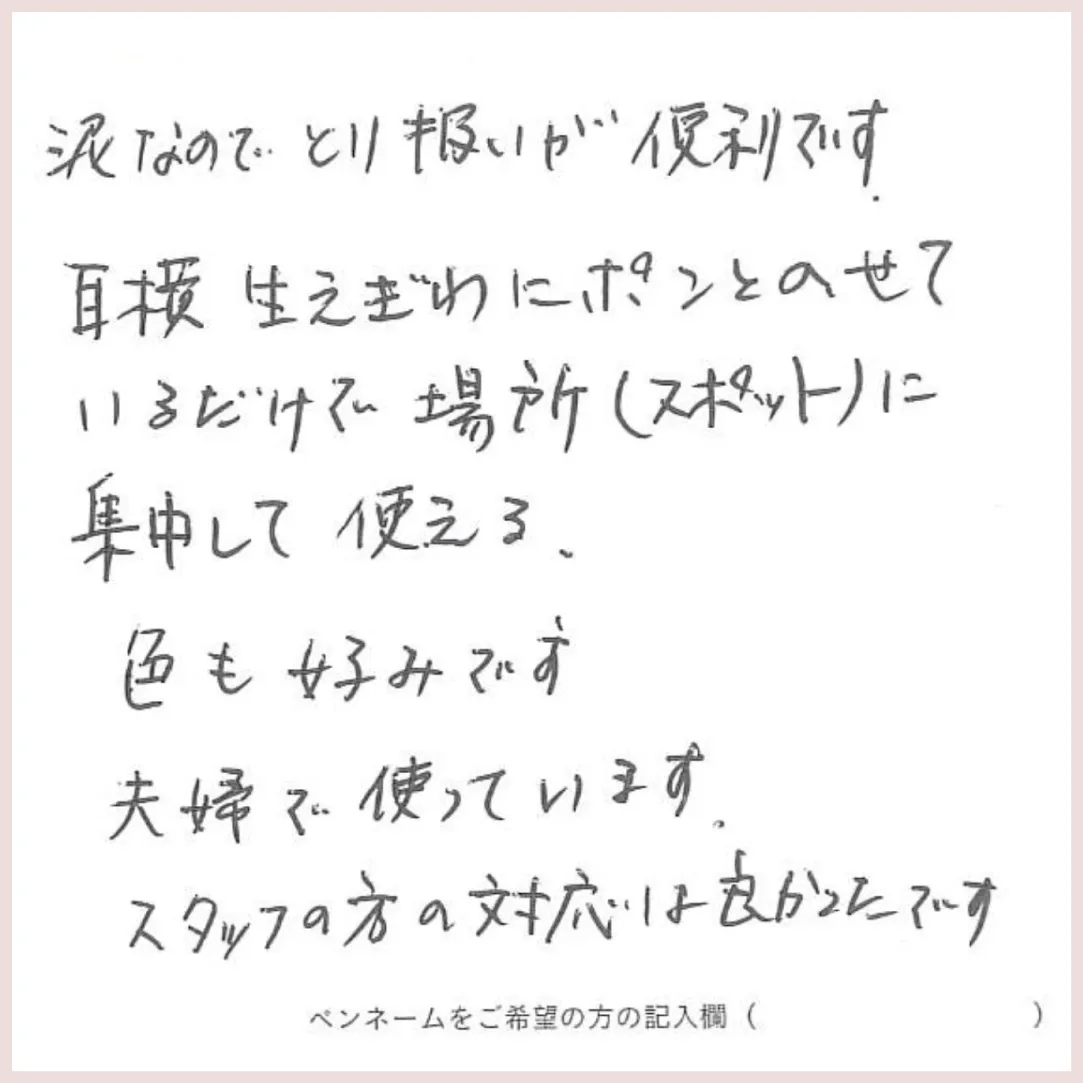 泥なので とり扱いが 便利です.
耳横 生えぎわにポンとのせて
いるだけで 場所(スポット)に
集中して 使える.
色も 好みです
夫婦で 使っています.
スタッフの方の対応は良かったです
ペンネームをご希望の方の記入欄(　　　)